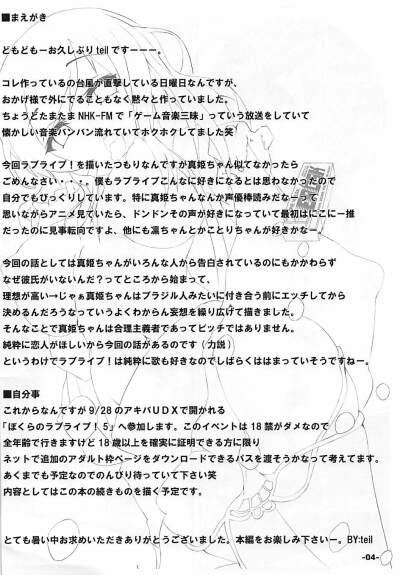 ■まえがき
どもどもーお久しぶり teil ですーーー。
コレ作っているの台風が直撃している日曜日なんですが、
おかげ様で外にでることもなく黙々と作っていました。
ちょうどたまたま NHK-FM で「ゲーム音楽三昧」っていう放送をしていて
懐かしい音楽バンバン流れていてホクホクしてました笑
今回ラブライブ！を描いたつもりなんですが真姫ちゃん似てなかったら
ごめんなさい・・・。僕もラブライブこんなに好きになるとは思わなかったので
自分でもびっくりしています。特に真姫ちゃんなんか声優棒読みだなーって
思いながらアニメ見ていたら、ドンドンその声が好きになっていて最初はにこにー推
だったのに見事転向ですよ、他にも凛ちゃんとかことりちゃんが好きかなー。
今回の話としては真姫ちゃんがいろんな人から告白されているのにもかかわらず
なぜ彼氏がいないんだ？ってところから始まって、
理想が高い→じゃぁ真姫ちゃんはブラジル人みたいに付き合う前にエッチしてから
決めるんだろうなっていうよくわからん妄想を繰り広げて描きました。
そんなことで真姫ちゃんは合理主義者であってビッチではありません。
純粋に恋人がほしいから今回の話があるのです（力説）
というわけでラブライブ！は純粋に歌も好きなのでしばらくははまっていそうですねー。
■自分事
これからなんですが 9/28 のアキバＵＤＸで開かれる
「ぼくらのラブライブ！ 5」へ参加します。このイベントは 18 禁がダメなので
全年齢で行きますけど 18 歳以上を確実に証明できる方に限り
ネットで追加のアダルト枠ページをダウンロードできるパスを渡そうかなって考えてます。
あくまでも予定なのでのんびり待っていて下さい笑
内容としてはこの本の続きものを描く予定です。
とても暑い中お求めいただきありがとうございました。本編をお楽しみ下さいー。BY:teil
-04-